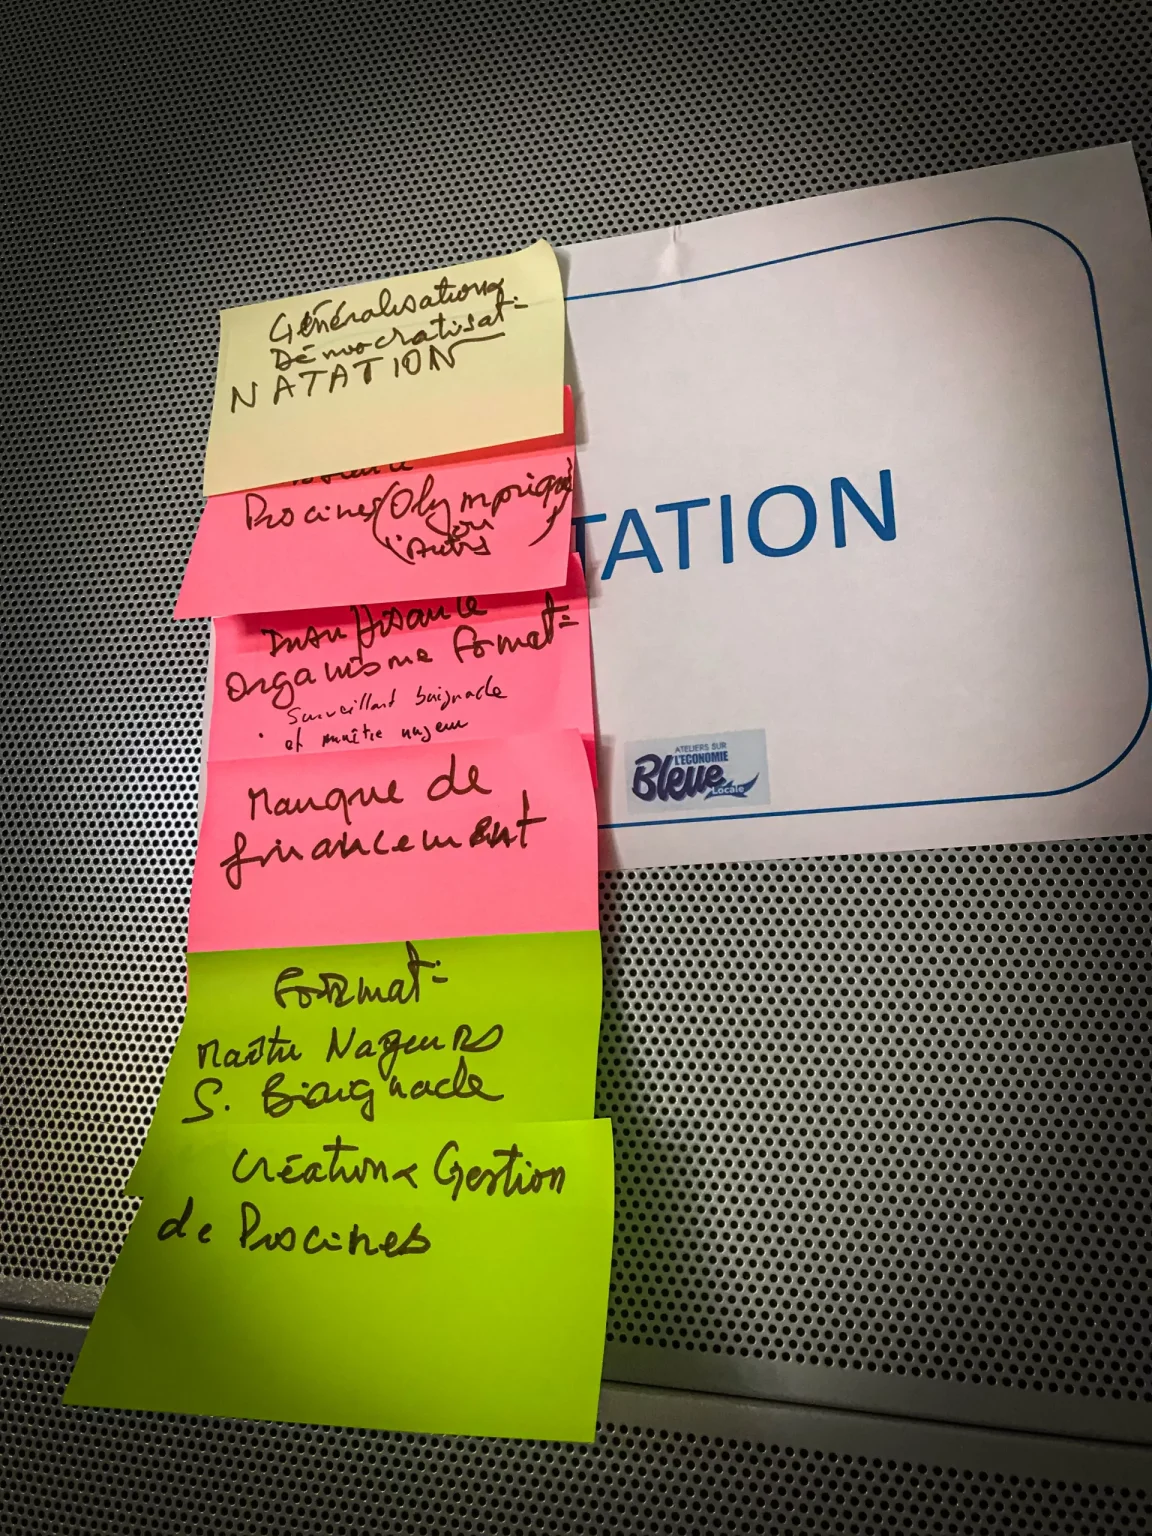 Généralisation &
Démocratisat=
NATATION
Piscines (Olympique
ou
Autres)
Insuffisance
Organisme format=
Surveillant baignade
et maître nageur
Manque de
financement
Format=
Maître Nageurs
S. Baignade
Création & Gestion
de Piscines
TATION
ATELIERS SUR
L'ECONOMIE
Bleue
Locale